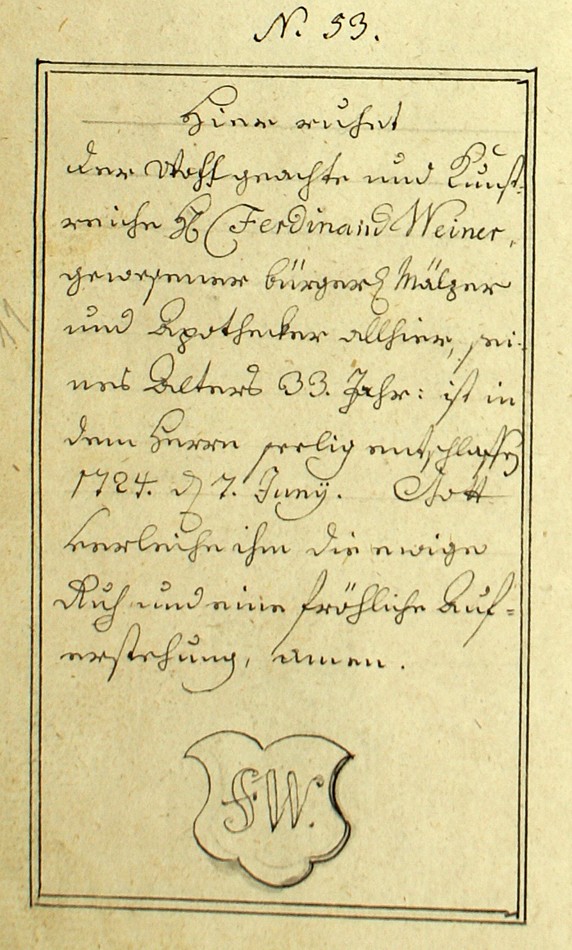 N. 53.
Hier ruhet
der Wohlgeachte und Kunst-
reiche H. Ferdinand Weiner,
gewesener bürgerl. Mälzer
und Apothecker allhier, sei-
nes Alters 33. Jahr: ist in
dem Herrn seelig entschlaffen
1724. d. 7. Juny. Gott
verleihe ihm die ewige
Ruh und eine fröhliche Auf-
erstehung, amen.
F. W.